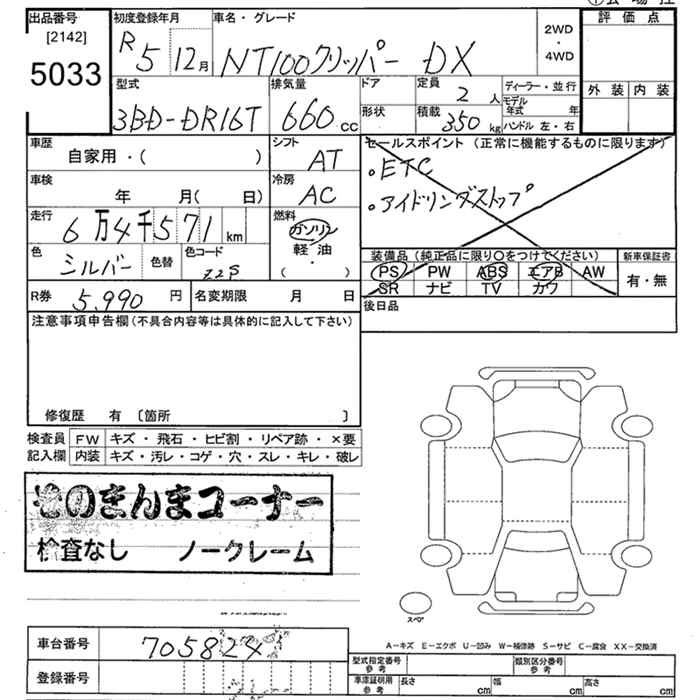 出品番号
[2142]
5033
初度登録年月
R5 12月
車名・グレード
NT100クリッパー DX
2WD
・
4WD
評価点
外装 内装
型式
3BD-DR16T
排気量
660 cc
ドア
形状
定員
2 人
積載
350 kg
ディーラー・並行
モデル
年式 年
ハンドル 左・右
車歴
自家用・( )
シフト
AT
車検
年 月( 日)
冷房
AC
セールスポイント (正常に機能するものに限ります)
・ETC
・アイドリングストップ
走行
6万4千571 km
燃料
ガソリン
軽油
・
( )
色
シルバー
色替
色コード
Z2S
装備品 (純正品に限り○をつけてください)
PS PW ABS エアB AW
SR ナビ TV カワ
新車保証書
有・無
R券 5,990 円
名変期限 月 日
後日品
注意事項申告欄 (不具合内容等は具体的に記入して下さい)
修復歴 有 〔箇所 〕
検査員 FW キズ・飛石・ヒビ割・リペア跡・×要
記入欄 内装 キズ・汚レ・コゲ・穴・スレ・キレ・破レ
そのまんまコーナー
検査なし ノークレーム
スペア
A-キズ E-エクボ U-凹み W-補修跡 S-サビ C-腐食 XX-交換済
車台番号 705824
登録番号
型式指定番号
参考
類別区分番号
参考
車庫証明用
参考
長さ cm 幅 cm 高さ cm